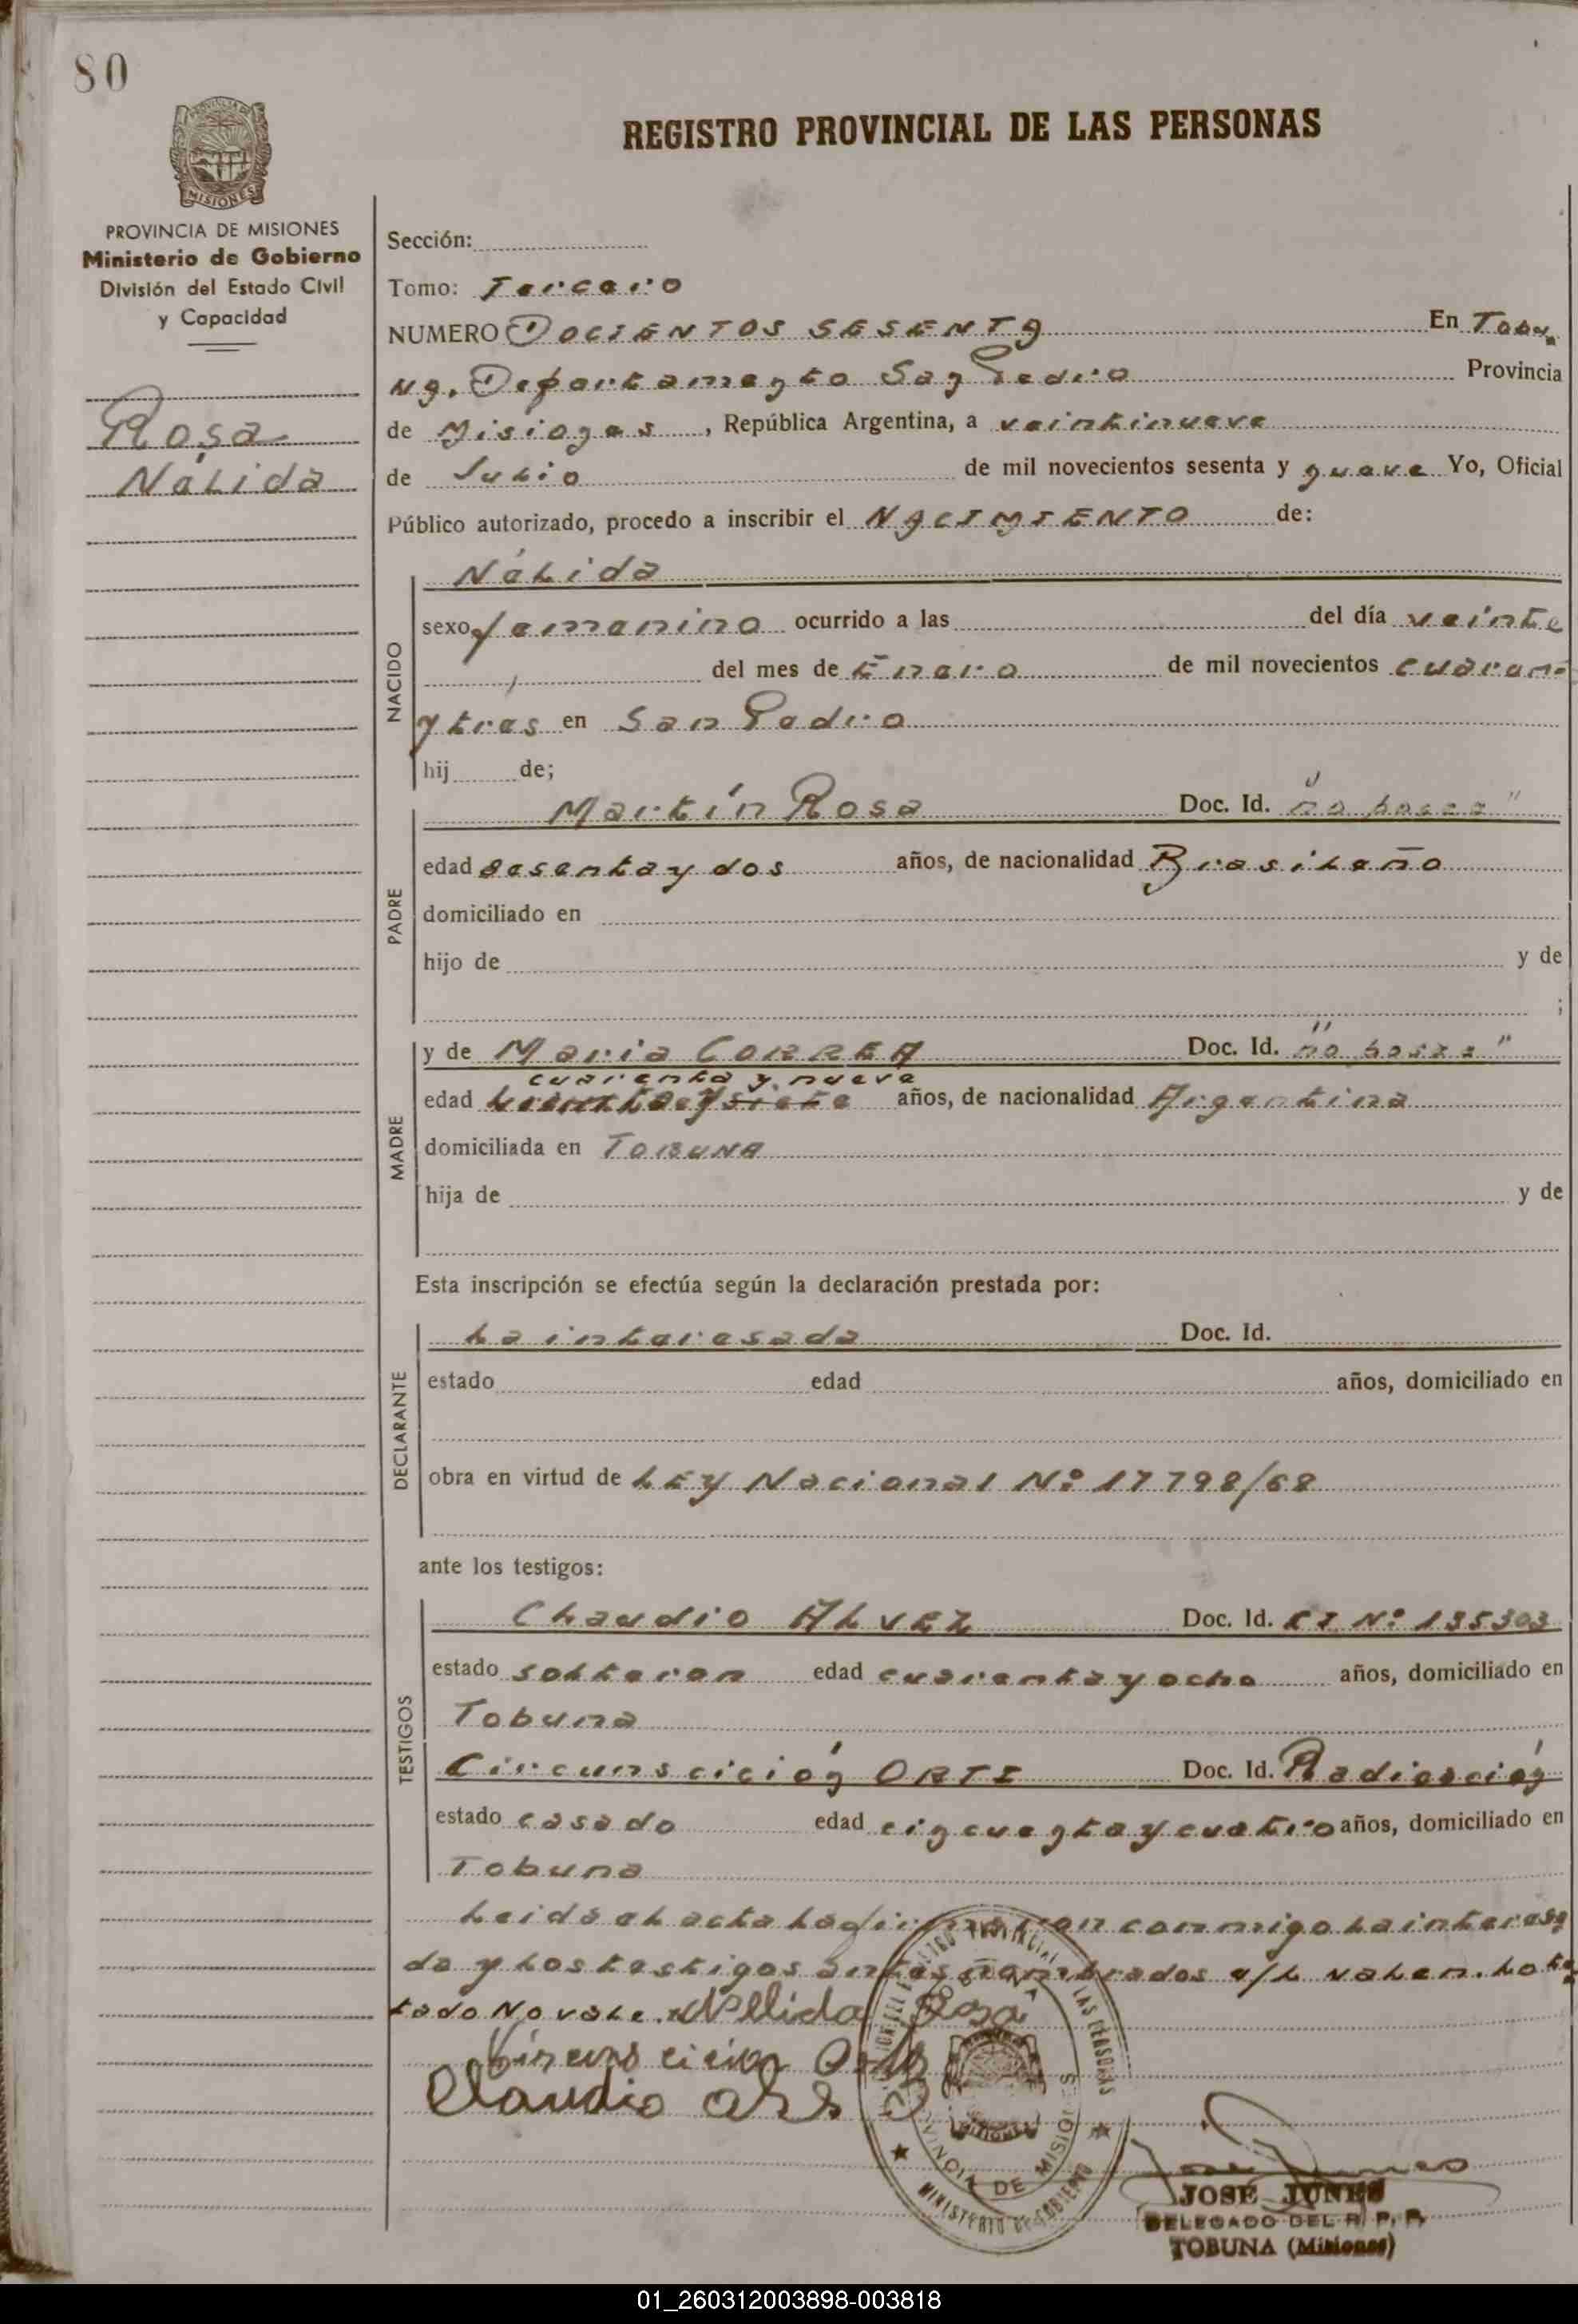 80
REGISTRO PROVINCIAL DE LAS PERSONAS
MISIONES
PROVINCIA DE MISIONES
Ministerio de Gobierno
División del Estado Civil
y Capacidad
Rosa
Nélida
Sección:
Tomo: Tercero
NUMERO DOCIENTOS SESENTA En Tobu
na. Departamento San Pedro Provincia
de Misiones, República Argentina, a veintinueve
de Julio de mil novecientos sesenta y nueve Yo, Oficial
Público autorizado, procedo a inscribir el NACIMIENTO de:
NACIDO
Nélida
sexo femenino ocurrido a las del día veinte
del mes de Enero de mil novecientos cuaren
y tres en San Pedro
hij de;
PADRE
Martín Rosa Doc. Id. "no posee"
edad sesenta y dos años, de nacionalidad Brasileño
domiciliado en
hijo de y de
;
MADRE
y de Maria CORREA Doc. Id. "no posee"
cuarenta y nueve
edad y siete años, de nacionalidad Argentina
domiciliada en TOBUNA
hija de y de
Esta inscripción se efectúa según la declaración prestada por:
DECLARANTE
La interesada Doc. Id.
estado edad años, domiciliado en
obra en virtud de LEY Nacional Nº 17798/68
ante los testigos:
TESTIGOS
Claudio ALVEZ Doc. Id. CI Nº 135303
estado solteron edad cuarenta y ocho años, domiciliado en
Tobuna
Circunscición ORTI Doc. Id. Radicación
estado casado edad cincuenta y cuatro años, domiciliado en
Tobuna
Leida el acta la firmaron conmigo la interesa
da y los testigos antes nombrados e/l valen. Lo tes
tado No vale. Nelida Rosa
Circuns cicion
Claudio
TOBUNA
PROVINCIA DE MISIONES
MINISTERIO DE GOBIERNO
JOSE JUNES
DELEGADO DEL R. P. P.
TOBUNA (Misiones)
01_260312003898-003818